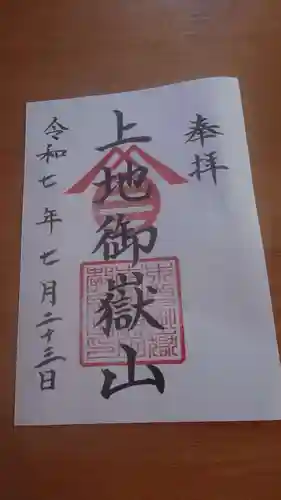 奉拝
上地御嶽山
令和七年七月二十三日